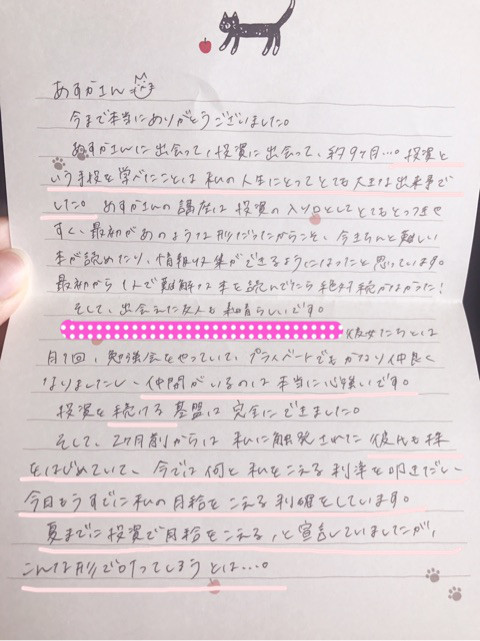 あすかさん
今まで本当にありがとうございました。
あすかさんに出会って、投資に出会って、約9ヶ月…。投資と
いう手段を学べたことは私の人生にとってとても大きな出来事で
した。あすかさんの講座は投資の入り口としてとてもとっつきや
すく、最初があのような形だったからこそ、今きちんと難しい
本が読めたり、情報収集ができるようになったと思っています。
最初から1人で難解な本を読んでたら絶対続かなかった!
そして、出会えた友人も素晴らしいです。
彼女たちとは
月1回、勉強会をやっていて、プライベートでもかなり仲良く
なりましたし、仲間がいるのは本当に心強いです。
投資を続ける基盤は完全にできました。
そして、2ヶ月前からは私に触発された彼氏も株
をはじめていて、今では何と私をこえる利率を叩きだし、
今月もうすでに私の月給をこえる利確をしています。
夏までに投資で月給をこえる、と宣言していましたが、
こんな形で叶ってしまうとは…。